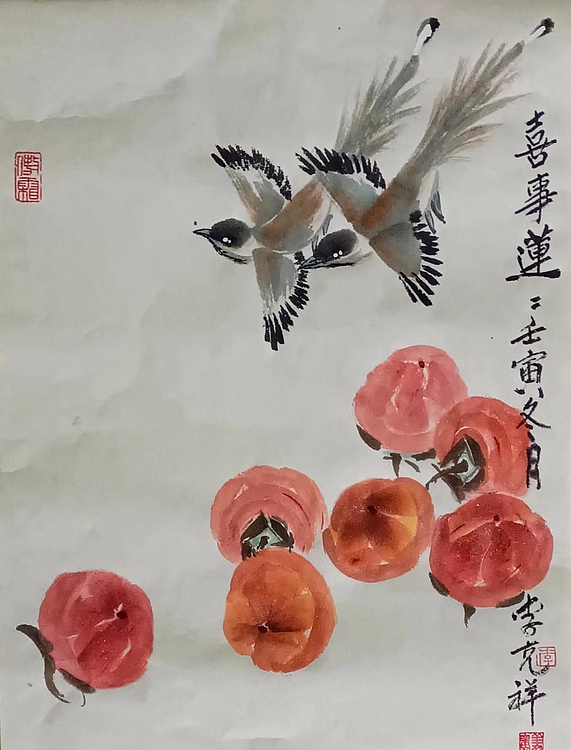 喜事蓮〻壬寅冬月
李克祥